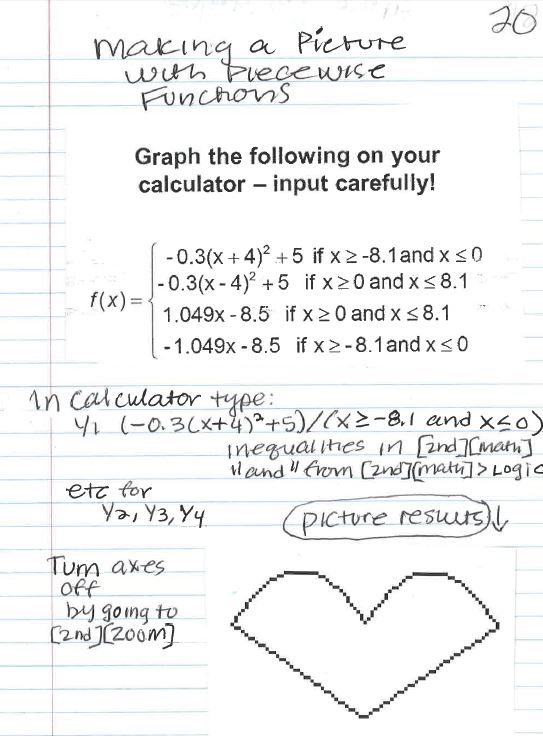 20
Making a Picture
with Piecewise
Functions
Graph the following on your
calculator – input carefully!
f(x) = { -0.3(x + 4)² + 5 if x ≥ -8.1 and x ≤ 0
-0.3(x - 4)² + 5 if x ≥ 0 and x ≤ 8.1
1.049x - 8.5 if x ≥ 0 and x ≤ 8.1
-1.049x - 8.5 if x ≥ -8.1 and x ≤ 0
In calculator type:
Y1 (-0.3(x+4)²+5)/(x ≥ -8.1 and x ≤ 0)
inequalities in [2nd][math]
"and" from [2nd][math] > Logic
etc for
Y2, Y3, Y4
picture results ↓
Turn axes
off
by going to
[2nd][ZOOM]